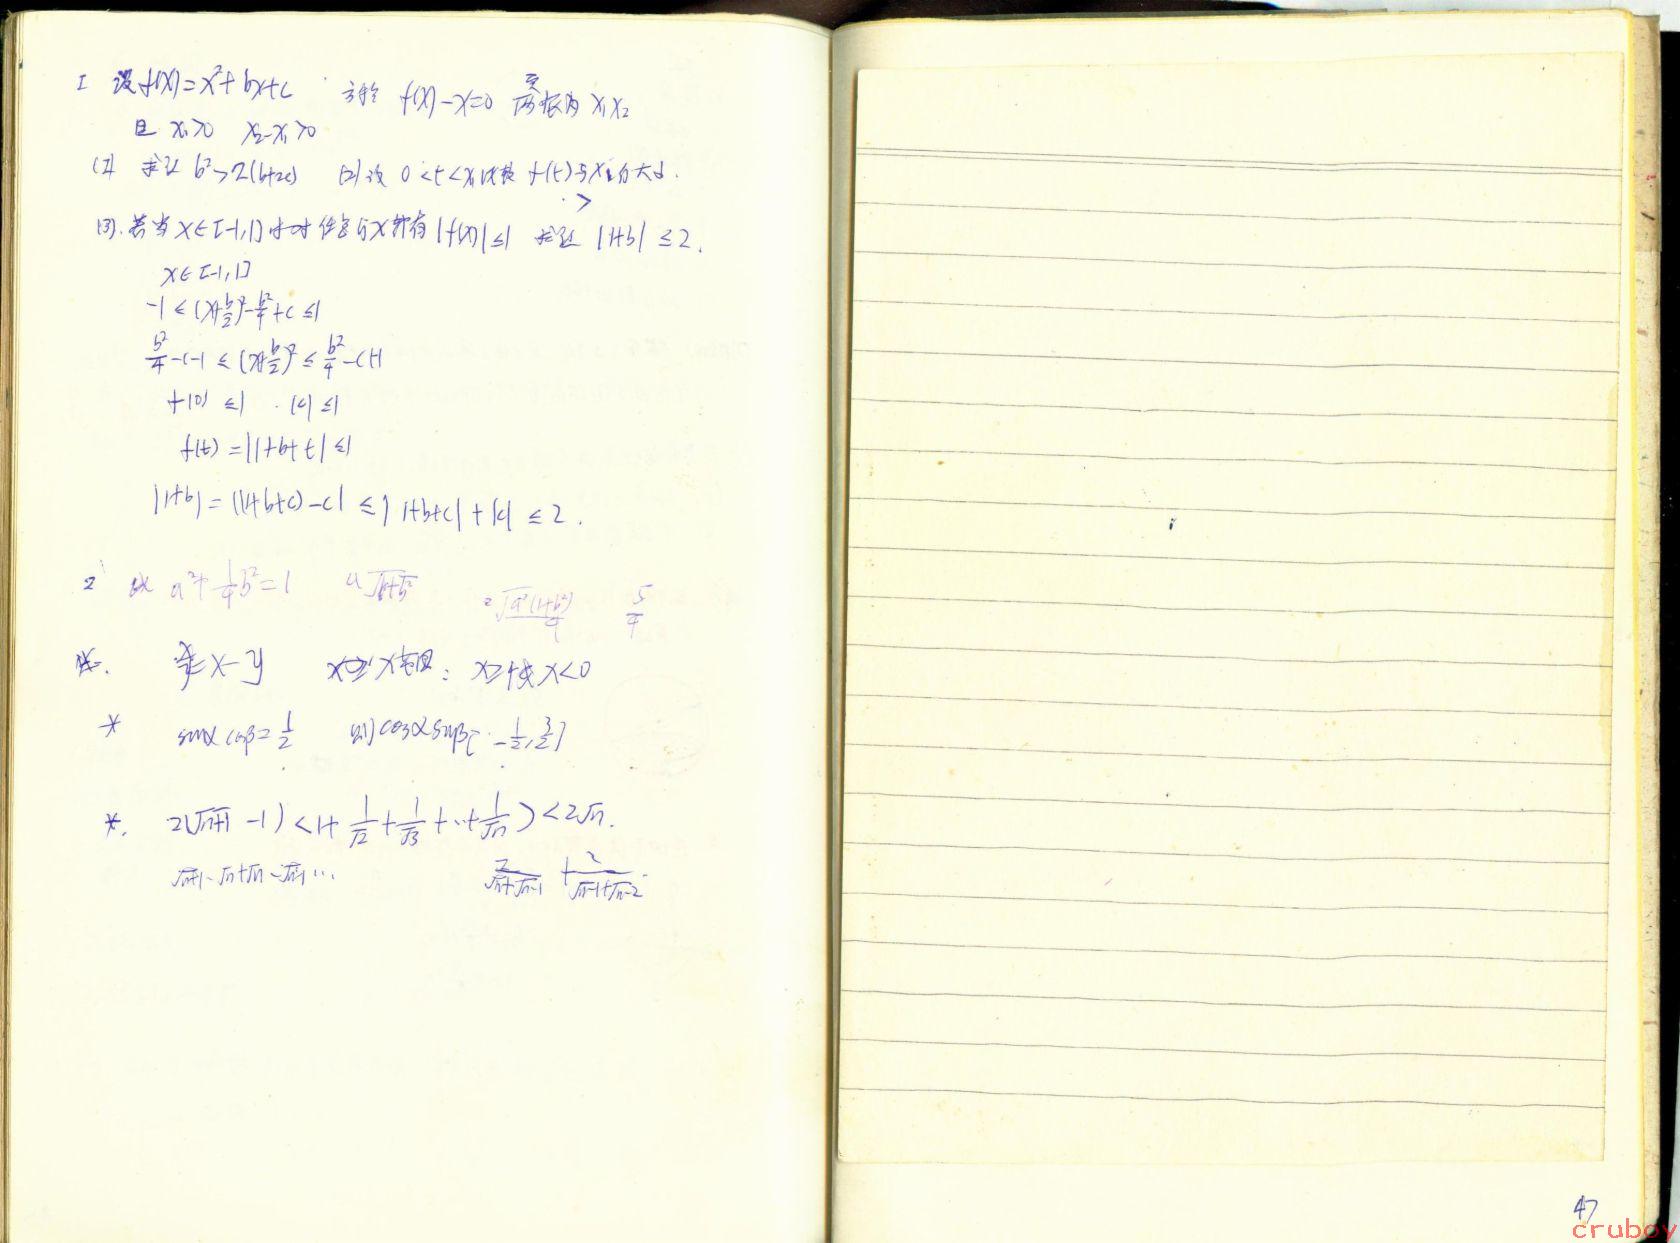 I 设f(x)=x²+bx+c 方程 f(x)-x=0 两根为 x₁x₂
且 x₁>0 x₂-x₁>0
(I) 求证 b²>2(b+2c) (2) 设 0<t<x₁ 比较 f(t)与x₁的大小.
>
(3). 若当 x∈[-1,1]时对任意的x都有|f(x)|≤1 求证 |1+b|≤2.
x∈[-1,1]
-1≤(x+b/2)²-b²/4+c≤1
b²/4-c-1≤(x+b/2)²≤b²/4-c+1
f(0)≤1 . |c|≤1
f(t)=|1+b+t|≤1
|1+b|=|(1+b+c)-c|≤|1+b+c|+|c|≤2.
2 a²+1/4b²=1 5/4
=x-y : x<0
* sinαcosβ=1/2 则cosαsinβ[-1/2,3/2]
*. 2(√n+1-1)<1+1/√2+1/√3+..+1/√n)<2√n.
√n+1-√n+√n-√n-1... 2/√n+√n-1 + 2/√n-1+√n-2
47
cruboy